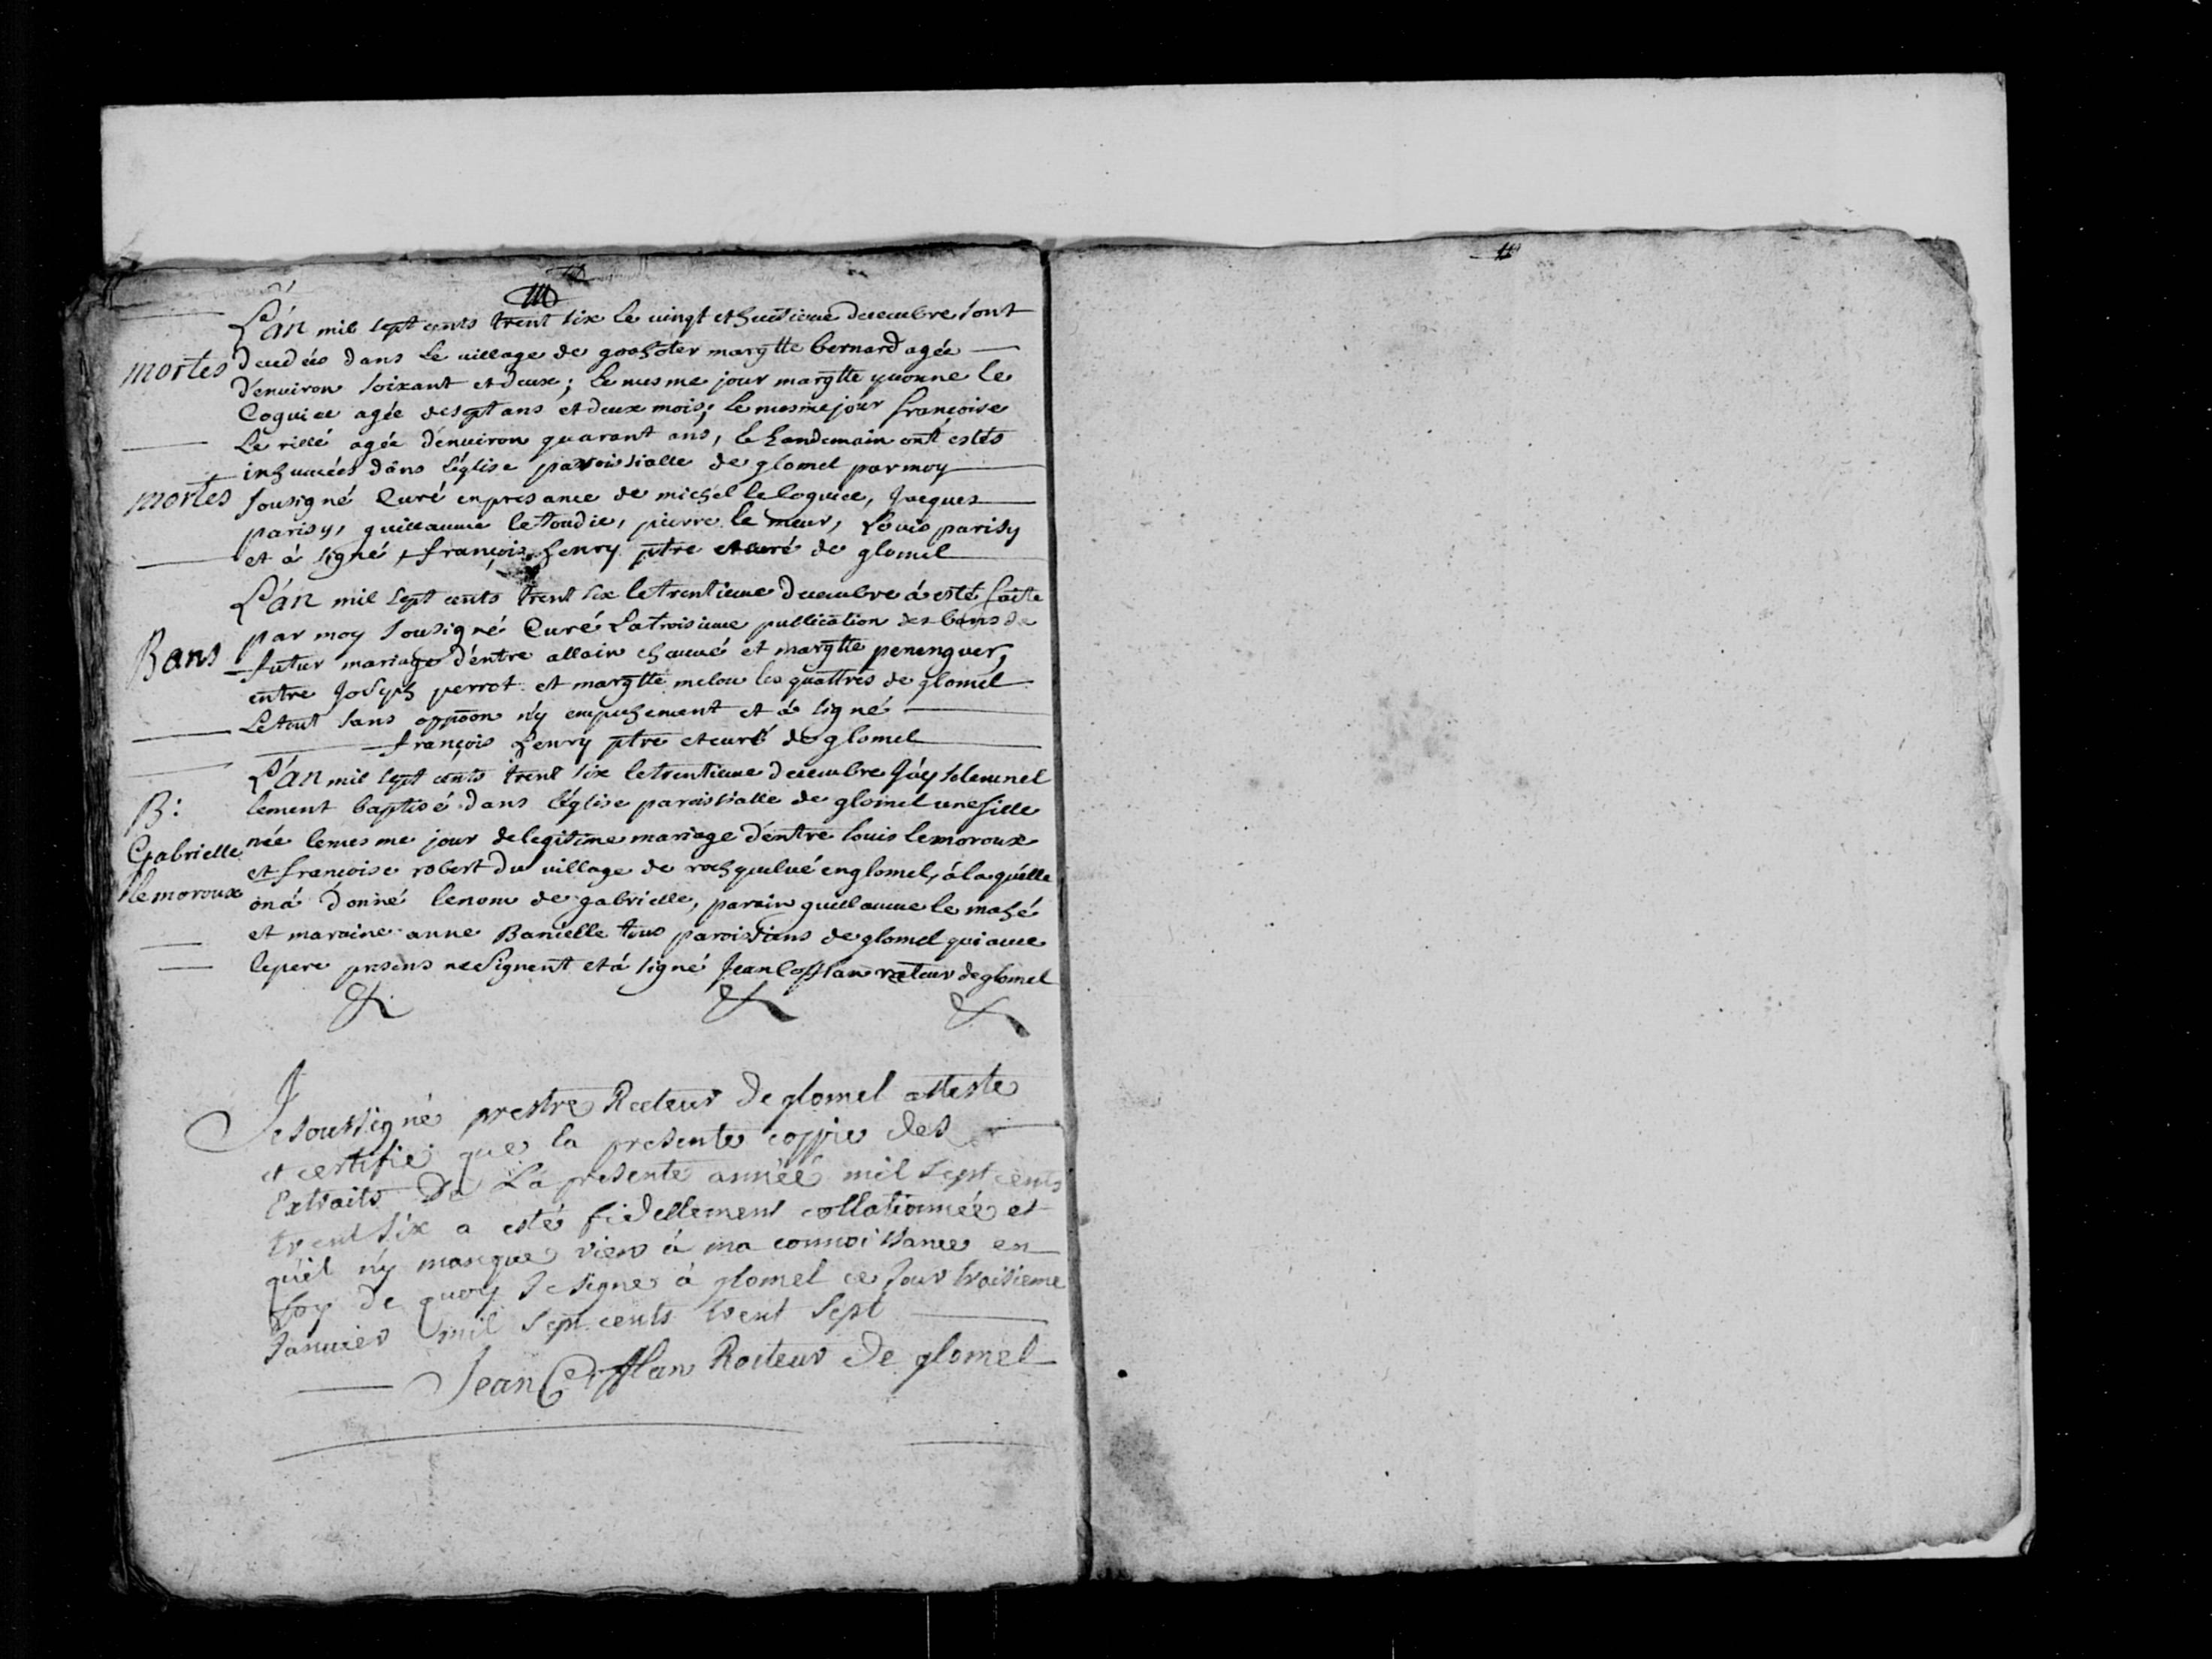 L'án mil sept cents trent six le vingt et huitieme decembre sont
mortes decedées dans le village de goashoter margtte bernard agée
d'environ soixant et deux; le mesme jour margtte yvonne le
Coguiec agée de sept ans et deux mois; le mesme jour françoise
Le rillé agée d'environ quarant ans, le landemain ont estés
inhumées dans l'église paroissialle de glomel par moy
mortes sousigné Curé en presance de michel le Coguiec, Jacques
parisy, guillaume le toudic, pierre le meur, Louis parisy
et á signé, françois henry ptre et curé de glomel
L'án mil sept cents trent six le trentieme decembre á esté faite
par moy sousigné Curé La troisieme publication des bans de
Bans futur mariage d'entre allain chauvé et margtte penenguer,
entre Joseph perrot et margtte melou les quattres de glomel
Le tout sans oppoon n'y empechement et á signé
françois henry ptre et curé de glomel
L'án mil sept cents trent six le trentieme decembre J'áy solemnel
B: lement baptisé dans l'église paroissialle de glomel une fille
Gabrielle née le mesme jour de legitime mariage d'entre louis le moroux
et françoise robert du village de roshquelvé en glomel, á la quélle
le moroux on á donné le nom de gabrielle, parain guillaume le mahé
et maraine anne Banielle tous paroissians de glomel qui avec
le pere presens ne signent et á signé Jean Cofflan recteur de glomel
& & &
Je soussigné prestre Recteur De glomel atteste
et certifie que la presente coppie des
Extraits De La presente année mil sept cents
trent six a esté fidellement collationnée et
qu'il n'y manque rien á ma connoissance en
foy de quoy Je signe á glomel ce Jour troisieme
Janvier mil sept cents trent sept
Jean Cofflan Recteur De glomel